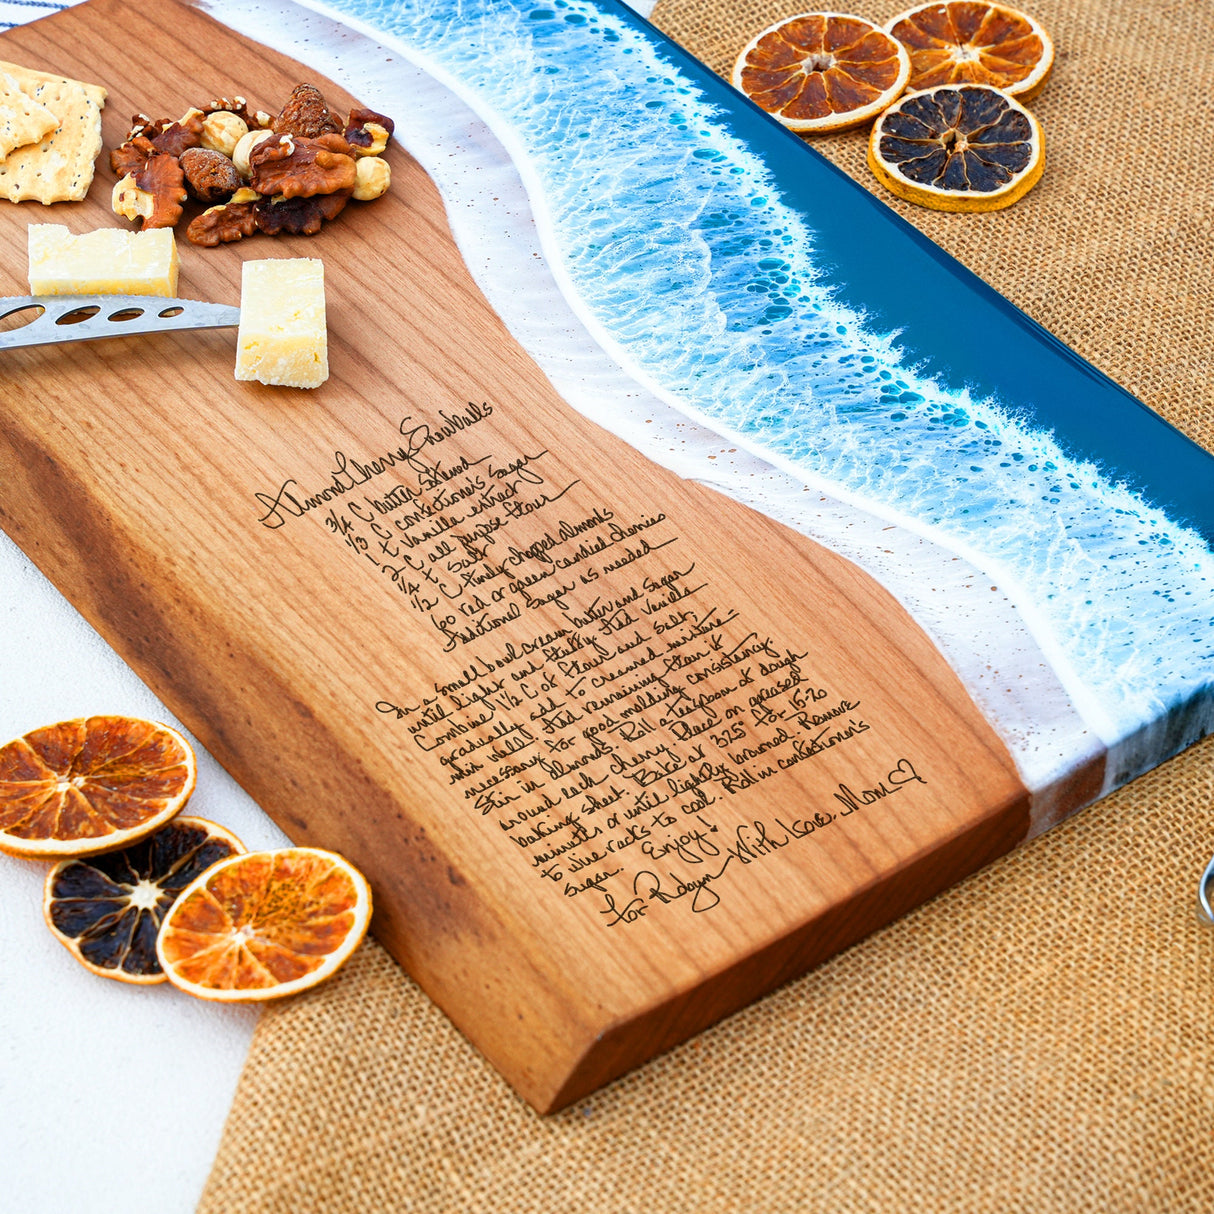 Almond Cherry Snowballs
3/4 C butter softened
1/3 C confectioner's sugar
1 t vanilla extract
2 C all purpose flour
1/4 t salt
1/2 C finely chopped almonds
60 red or green candied cherries
Additional sugar as needed
In a small bowl cream butter and sugar
until light and fluffy. Add vanilla
Combine 1 1/2 C of flour and salt,
gradually add to creamed mixture -
mix well. Add remaining flour if
necessary for good molding consistency.
Stir in almonds. Roll a teaspoon of dough
around each cherry. Place on greased
baking sheet. Bake at 325° for 15-20
minutes or until lightly browned. Remove
to wire racks to cool. Roll in confectioner's
sugar. Enjoy!
For Robyn With Love, Mom ♡